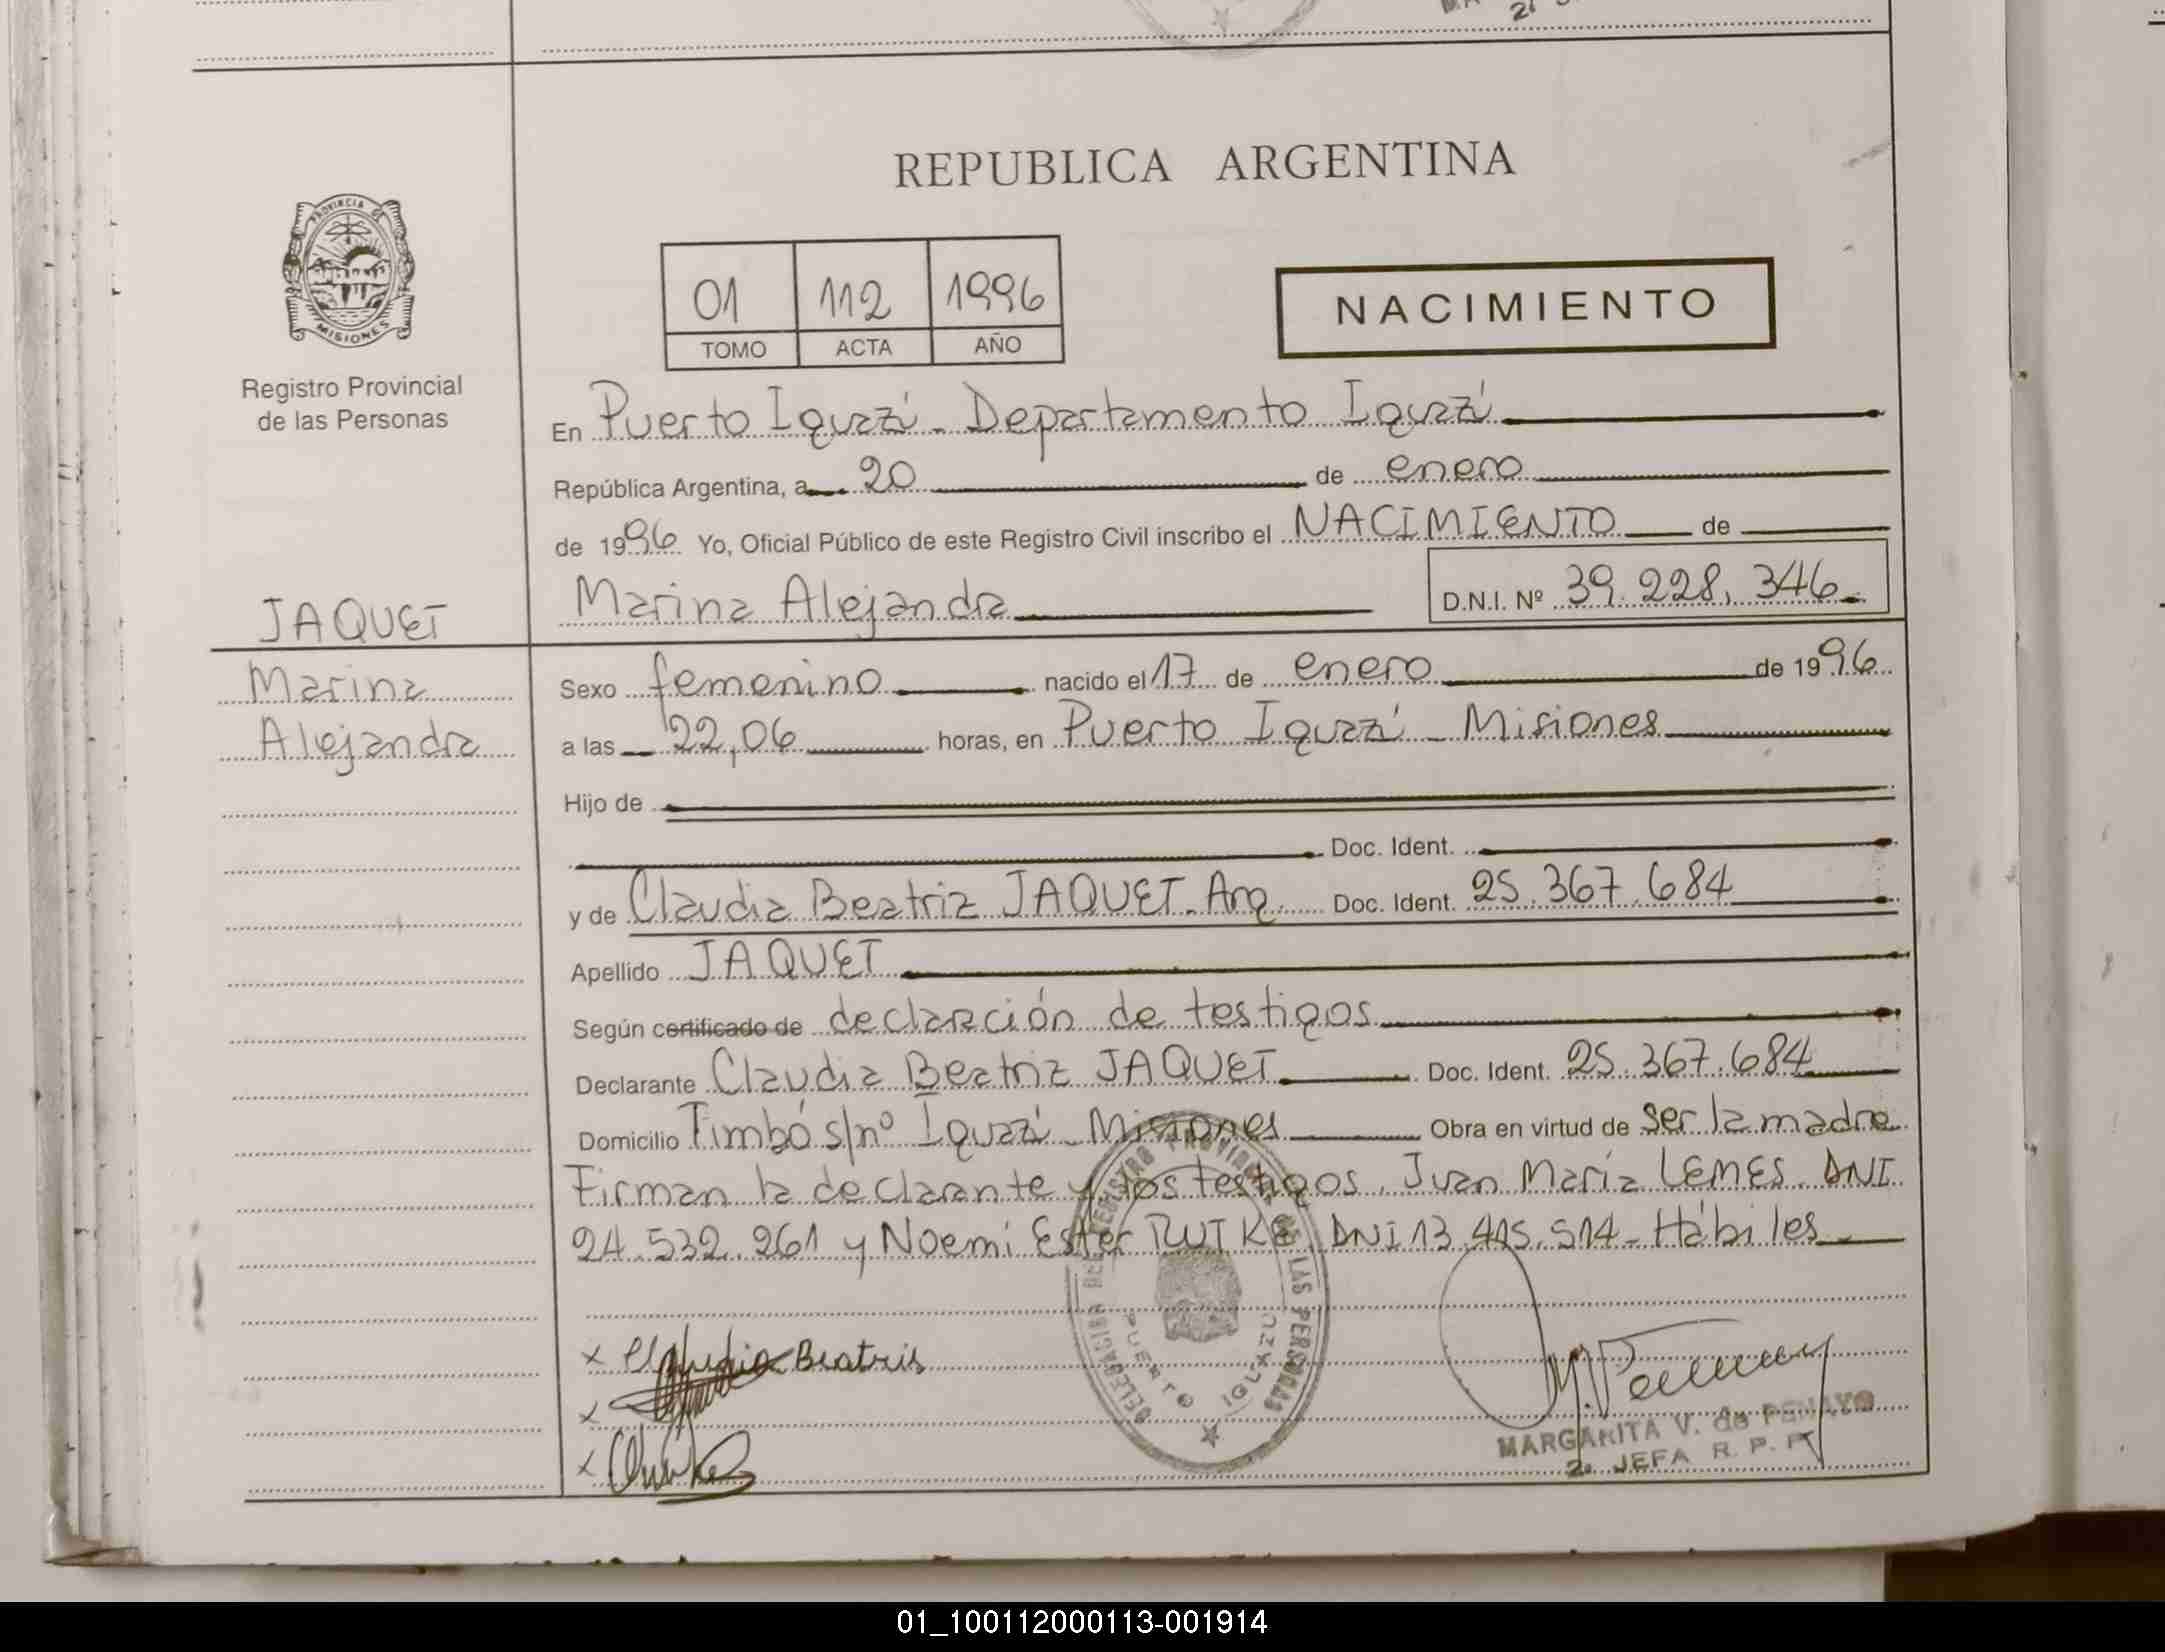 REPUBLICA ARGENTINA
PROVINCIA DE
MISIONES
Registro Provincial
de las Personas
01 112 1996
TOMO ACTA AÑO
NACIMIENTO
En Puerto Iguazú - Departamento Iguazú
República Argentina, a 20 de enero
de 1996 Yo, Oficial Público de este Registro Civil inscribo el NACIMIENTO de
JAQUET
Marina Alejandra D.N.I. Nº 39.228.346
Marina
Alejandra
Sexo femenino nacido el 17 de enero de 1996
a las 22,06 horas, en Puerto Iguazú - Misiones
Hijo de
Doc. Ident.
y de Claudia Beatriz JAQUET - Arg. Doc. Ident. 25.367.684
Apellido JAQUET
Según certificado de declaración de testigos
Declarante Claudia Beatriz JAQUET Doc. Ident. 25.367.684
Domicilio Timbó s/nº Iguazú - Misiones Obra en virtud de ser la madre
Firman la declarante y los testigos, Juan María LEMES. DNI
24.532.261 y Noemí Ester RUTKE DNI 13.415.514 - Hábiles
DELEGACION DEL REGISTRO PROVINCIAL DE LAS PERSONAS
PUERTO IGUAZU
x Claudia Beatris
x
x
MARGARITA V. de PENAYO
2. JEFA R. P. P.
01_100112000113-001914